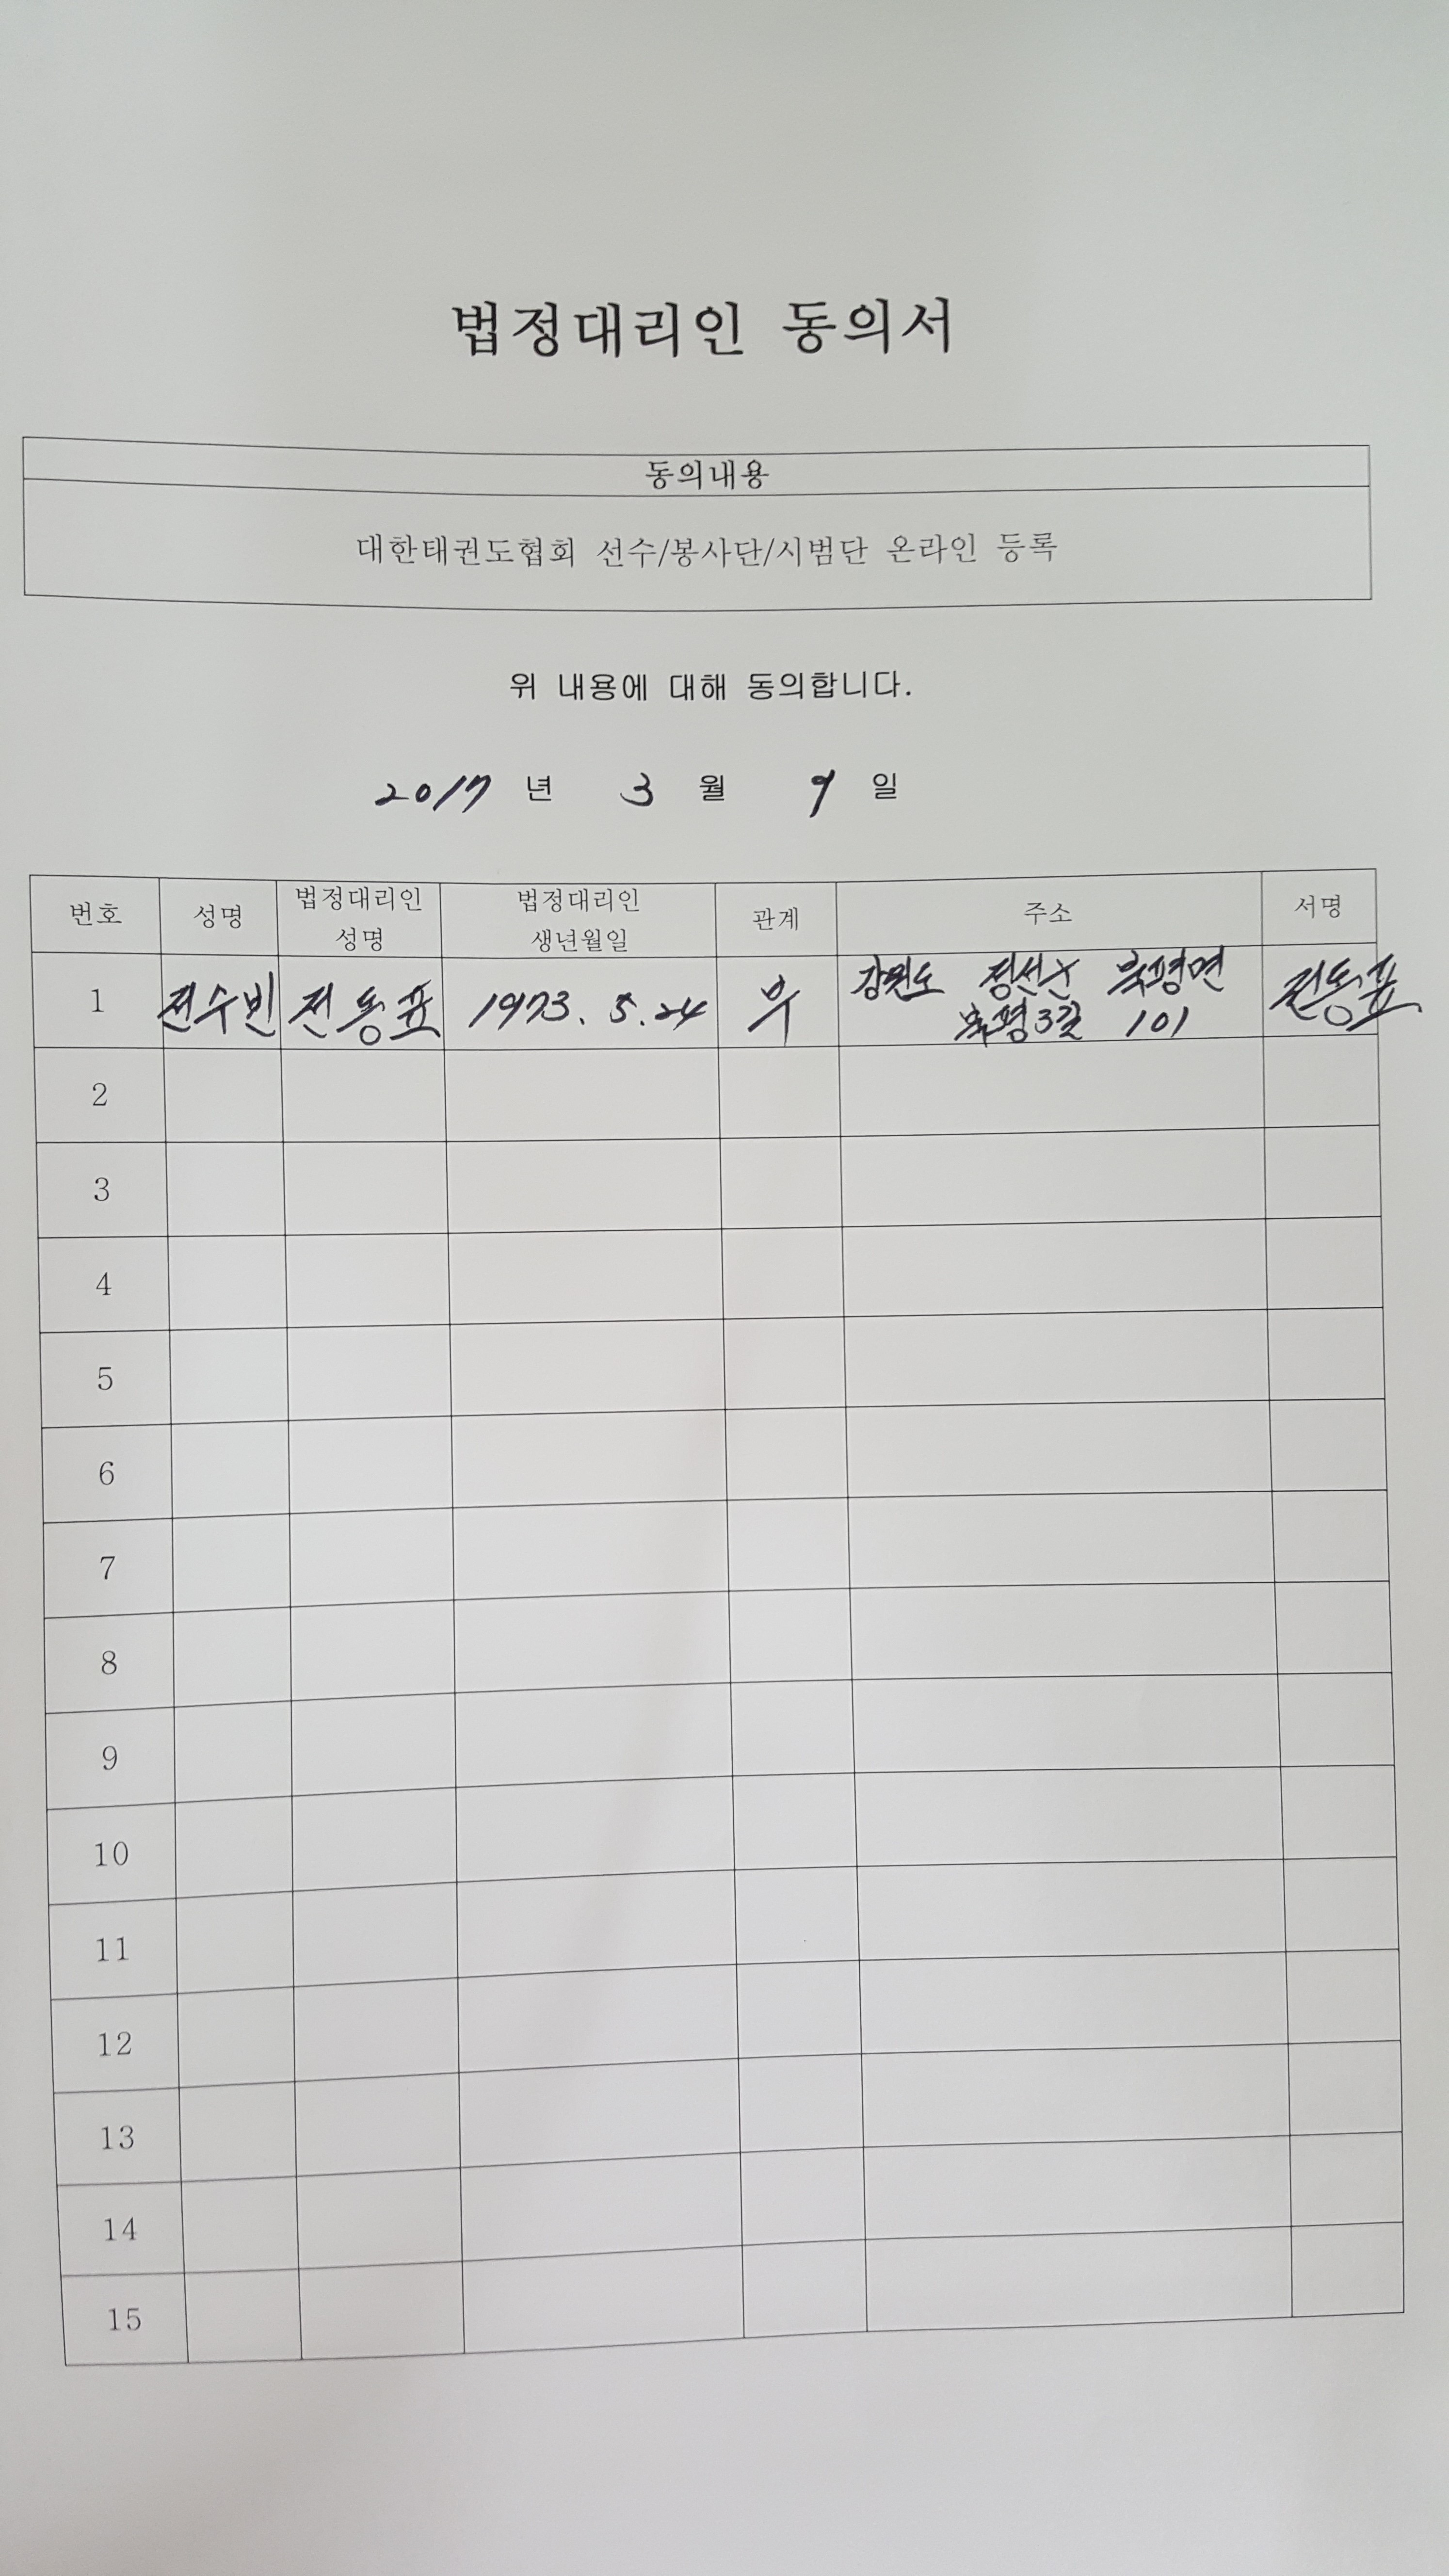 법정대리인 동의서
동의내용
대한태권도협회 선수/봉사단/시범단 온라인 등록
위 내용에 대해 동의합니다.
2017 년 3 월 9 일
번호 성명 법정대리인 성명 법정대리인 생년월일 관계 주소 서명
1 전수빈 전동표 1973. 5. 24 부 강원도 정선군 북평면 북평3길 101 전동표
2
3
4
5
6
7
8
9
10
11
12
13
14
15